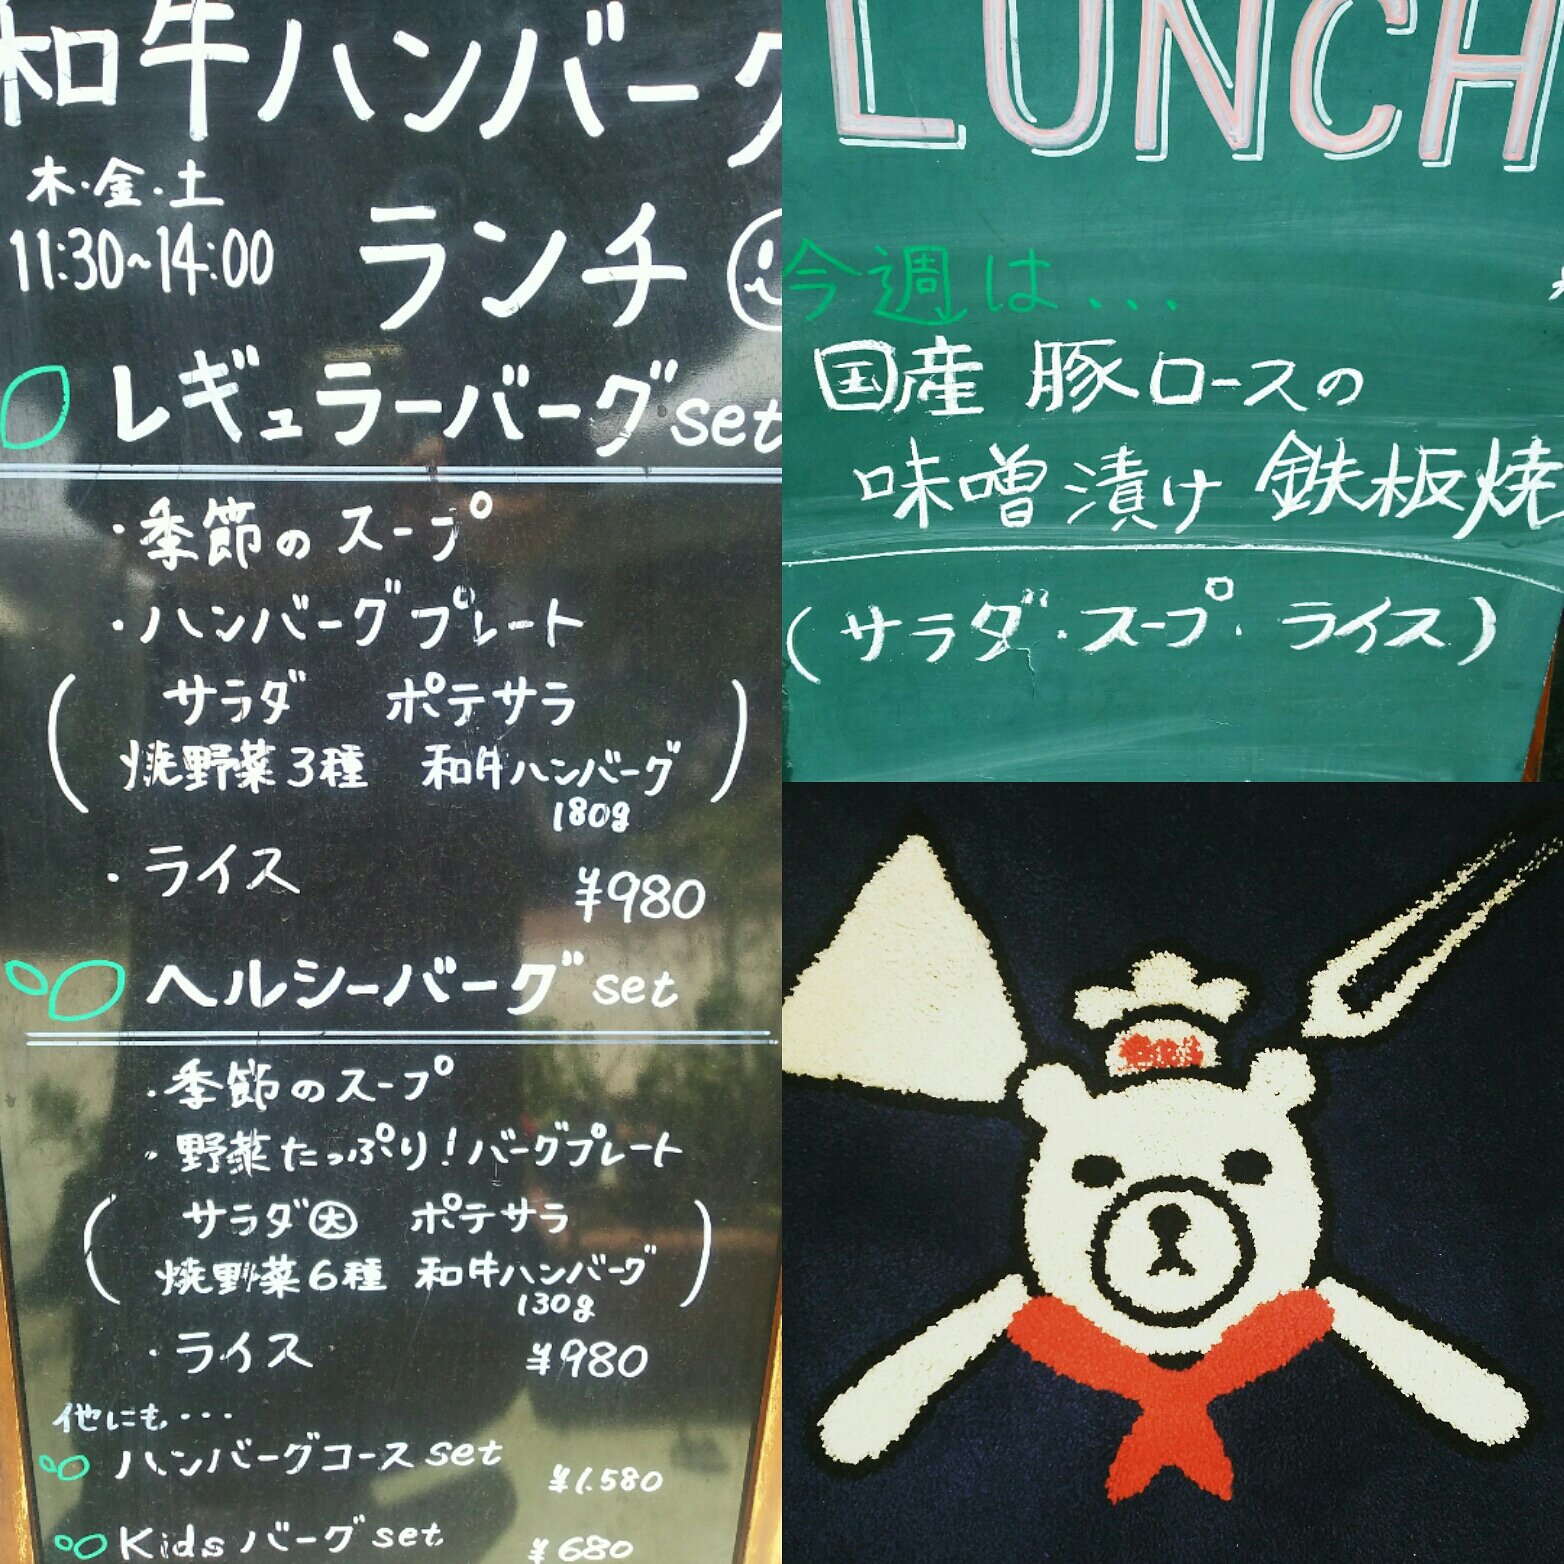 和牛ハンバーグ
木・金・土
11:30~14:00
ランチ
レギュラーバーグset
・季節のスープ
・ハンバーグプレート
(サラダ ポテサラ
焼野菜3種 和牛ハンバーグ)
180g
・ライス
¥980
ヘルシーバーグset
・季節のスープ
・野菜たっぷり!バーグプレート
(サラダ大 ポテサラ
焼野菜6種 和牛ハンバーグ)
130g
・ライス
¥980
他にも・・・
ハンバーグコースset ¥1.580
Kidsバーグset ¥680
LUNCH
今週は...
国産豚ロースの
味噌漬け 鉄板焼
(サラダ・スープ・ライス)